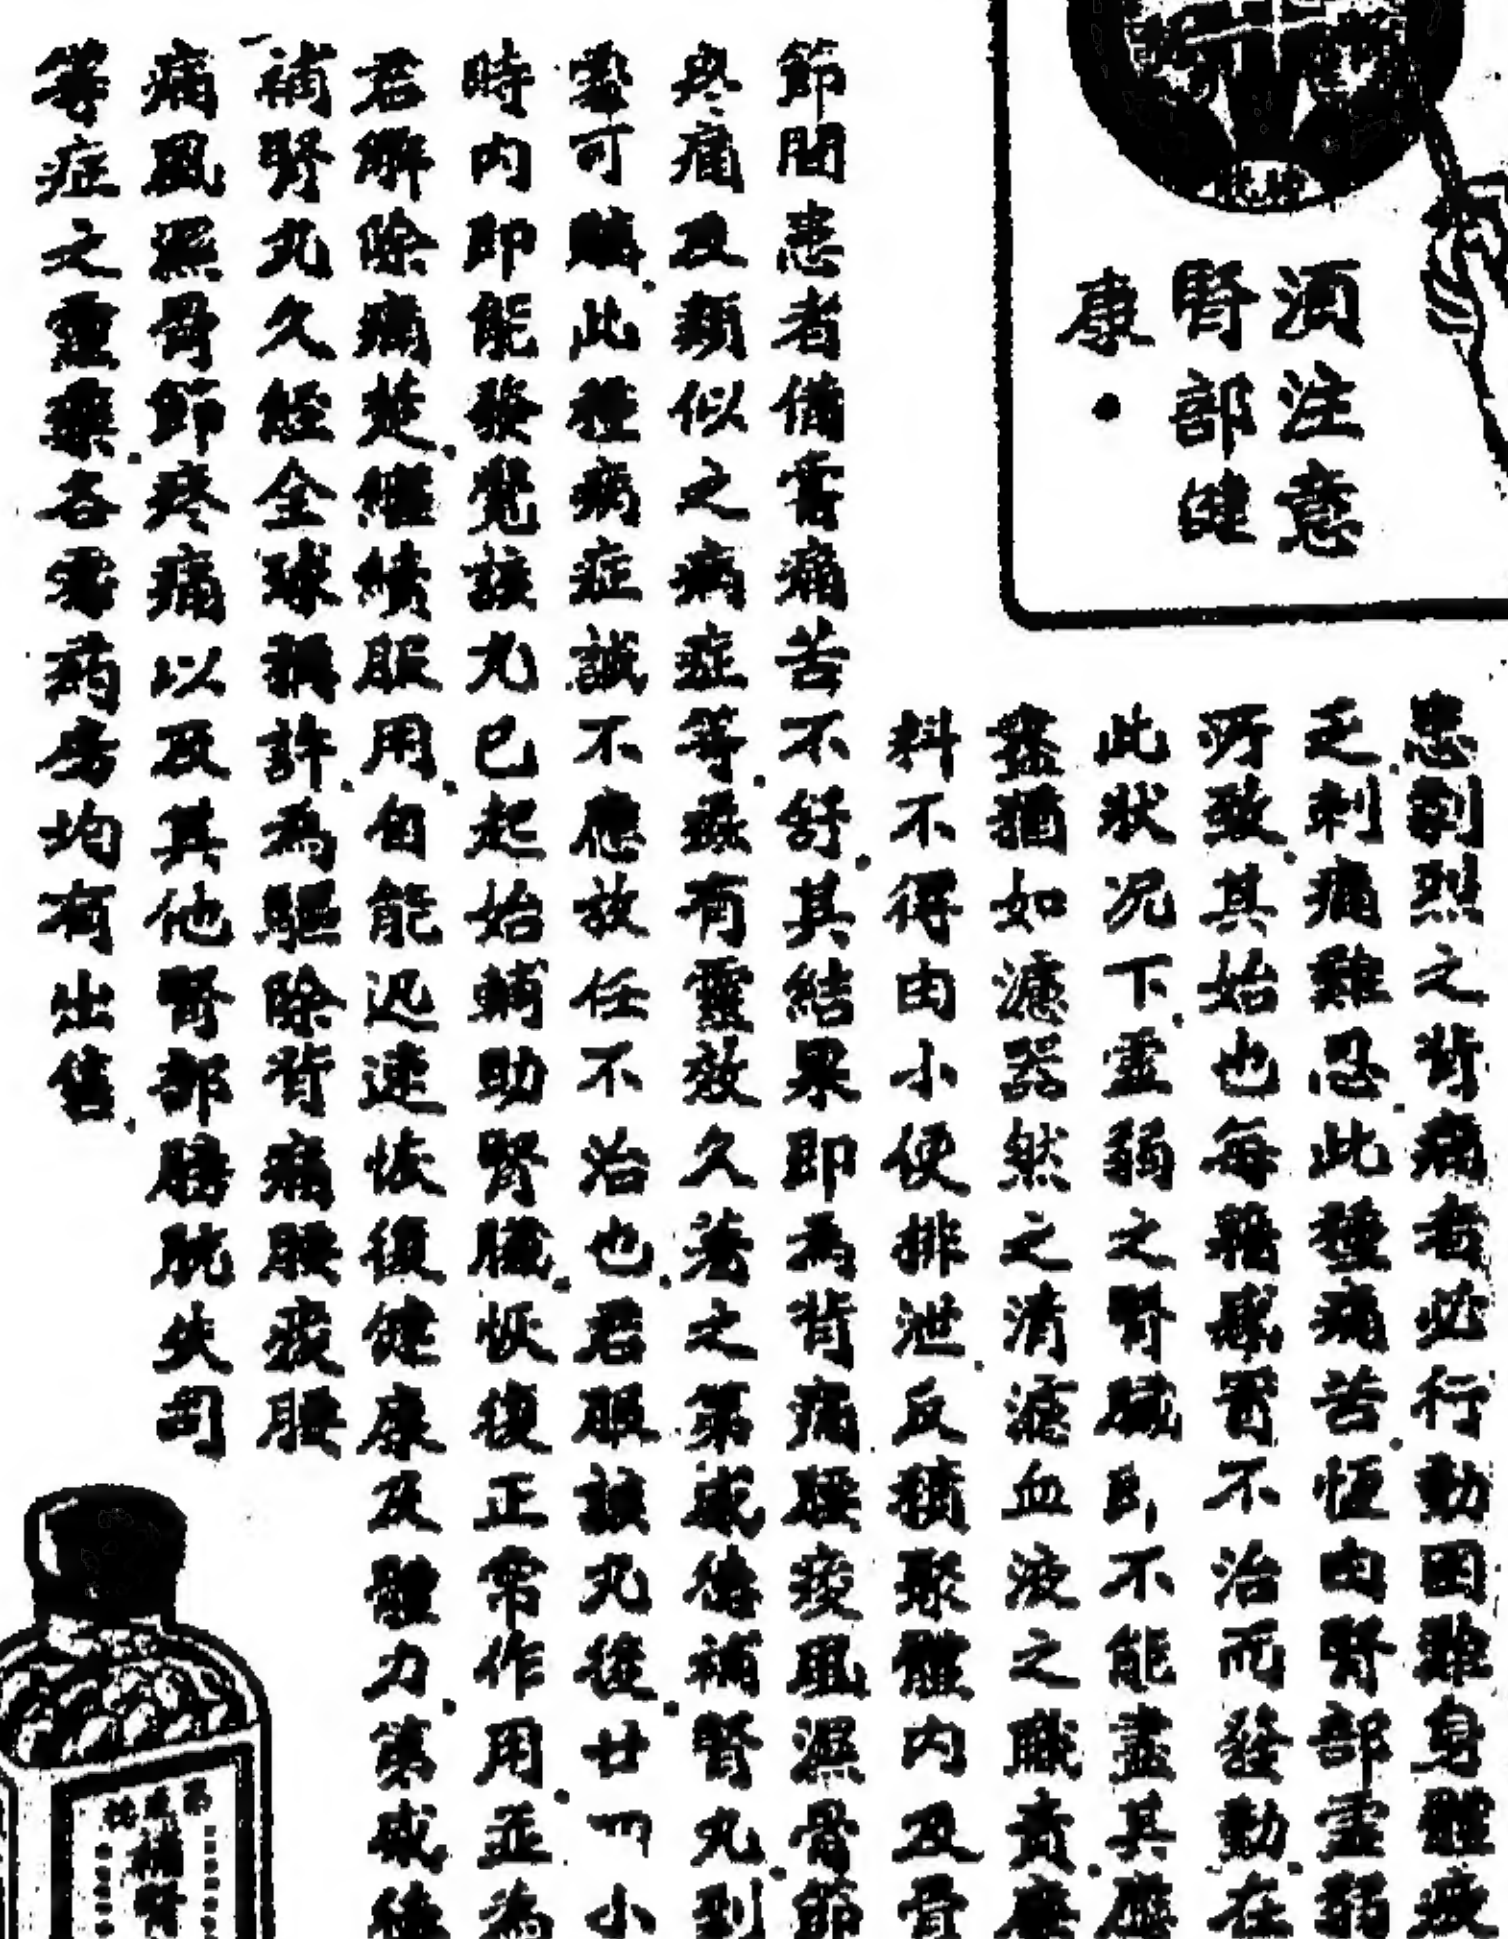 須注意
腎部健
康・
患劇烈之背痛者必行動困難身體疲
乏.刺痛難忍.此種痛苦.恒由腎部虛弱
所致.其始也每輕忽置不治而發動.在
此狀況下.虛弱之腎臟即不能盡其應
盡猶如濾器然之清濾血液之職責.廢
料不得由小便排泄.反積聚體內及骨
節間患者備嘗痛苦不舒.其結果即為背痛腰痠風濕骨節
疼痛及類似之病症等.茲有靈效久著之第威德補腎丸.到
處可購.此種病症誠不應放任不治也.君服該丸後.廿四小
時内即能發覺該丸已起始輔助腎臟.恢復正常作用.並為
君解除痛楚.繼續服用.自能迅速恢復健康及體力.第威德
補腎丸久經全球稱許.為驅除背痛腰痠腰
痛風濕骨節疼痛以及其他腎部膀胱失司
等症之靈藥.各處葯房均有出售.
第威德
補腎